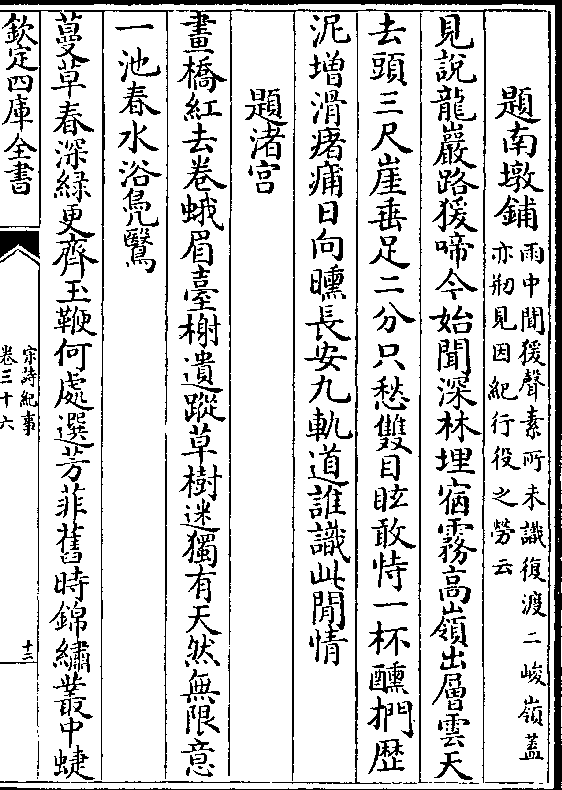 題南墩鋪雨中聞猨聲素所未識復渡二峻嶺蓋
亦刱見因紀行役之勞云
見說龍巖路猨啼今始聞深林埋宿霧高嶺出層雲天
去頭三尺崖垂足二分只愁雙目眩敢恃一杯醺捫歴
泥增滑瘏痡日向曛長安九軌道誰識此閒情
題渚宫
畫橋紅去卷蛾眉臺榭遺蹤草樹迷獨有天然無限意
一池春水浴鳬鷖
蔓草春深緑更齊玉鞭何處選芳菲舊時錦繡叢中蜨
欽定四庫全書
宋詩紀事
卷三十六
十三